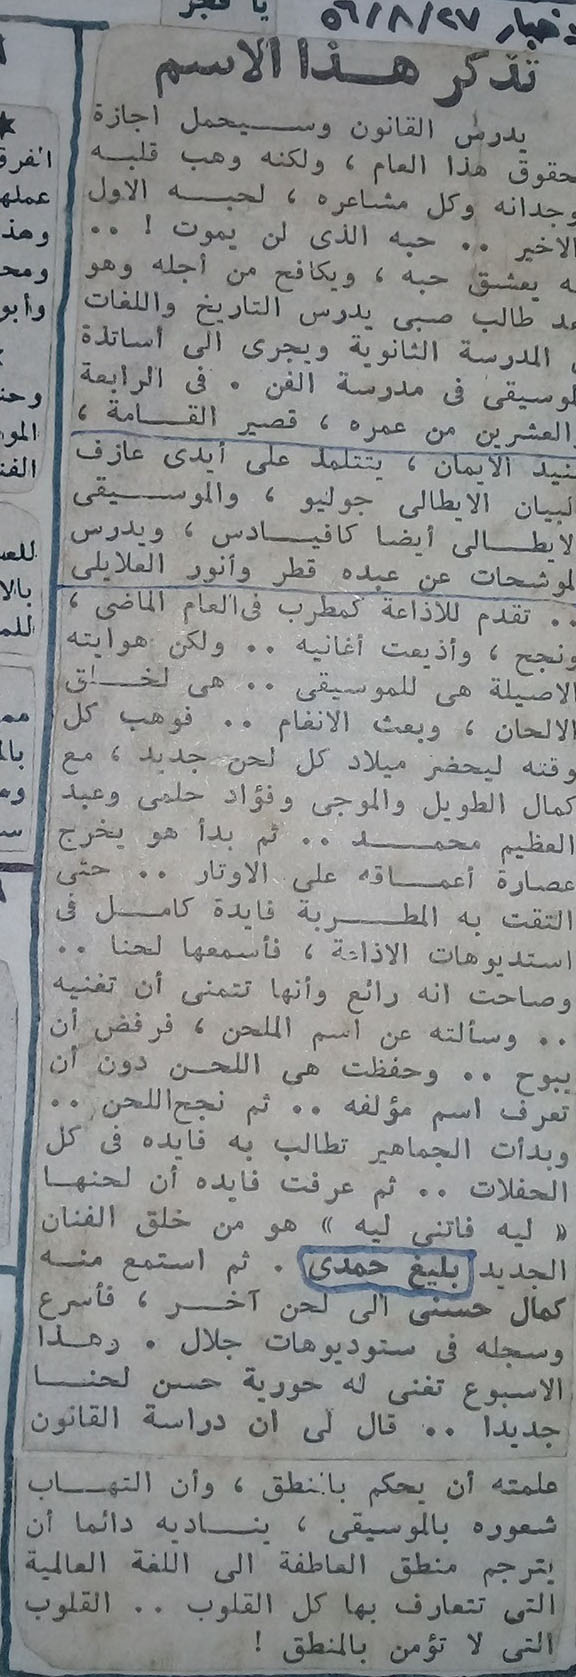 يا فجر
الاخبار ٥٦/٨/٢٧
تذكر هذا الاسم
يدرس القانون وسيحمل اجازة
حقوق هذا العام ، ولكنه وهب قلبه
وجدانه وكل مشاعره ، لحبه الاول
الاخير .. حبه الذى لن يموت ! ..
ه يعشق حبه ، ويكافح من أجله وهو
عد طالب صبى يدرس التاريخ واللغات
المدرسة الثانوية ويجرى الى أساتذة
لموسيقى فى مدرسة الفن . فى الرابعة
العشرين من عمره ، قصير القامة ،
نيد الايمان ، يتتلمذ على أيدى عازف
لبيان الايطالى جوليو ، والموسيقى
لايطالى أيضا كافيادس ، ويدرس
لموشحات عن عبده قطر وأنور العلايلى
.. تقدم للاذاعة كمطرب فى العام الماضى ،
ونجح ، وأذيعت أغانيه .. ولكن هوايته
الاصيلة هى للموسيقى .. هى لخلق
الالحان ، وبعث الانغام .. فوهب كل
وقته ليحضر ميلاد كل لحن جديد ، مع
كمال الطويل والموجى وفؤاد حلمى وعبد
العظيم محمد .. ثم بدأ هو يخرج
عصارة أعماقه على الاوتار .. حتى
التقت به المطربة فايدة كامل فى
استديوهات الاذاعة ، فأسمعها لحنا ..
وصاحت انه رائع وأنها تتمنى أن تغنيه
.. وسألته عن اسم الملحن ، فرفض أن
يبوح .. وحفظت هى اللحن دون أن
تعرف اسم مؤلفه .. ثم نجح اللحن ..
وبدأت الجماهير تطالب به فايده فى كل
الحفلات .. ثم عرفت فايده أن لحنها
« ليه فاتنى ليه » هو من خلق الفنان
الجديد بليغ حمدى . ثم استمع منه
كمال حسنى الى لحن آخر ، فأسرع
وسجله فى ستوديوهات جلال . وهذا
الاسبوع تغنى له حورية حسن لحنا
جديدا .. قال لى ان دراسة القانون
علمته أن يحكم بالمنطق ، وأن التهاب
شعوره بالموسيقى ، يناديه دائما أن
يترجم منطق العاطفة الى اللغة العالمية
التى تتعارف بها كل القلوب .. القلوب
التى لا تؤمن بالمنطق !